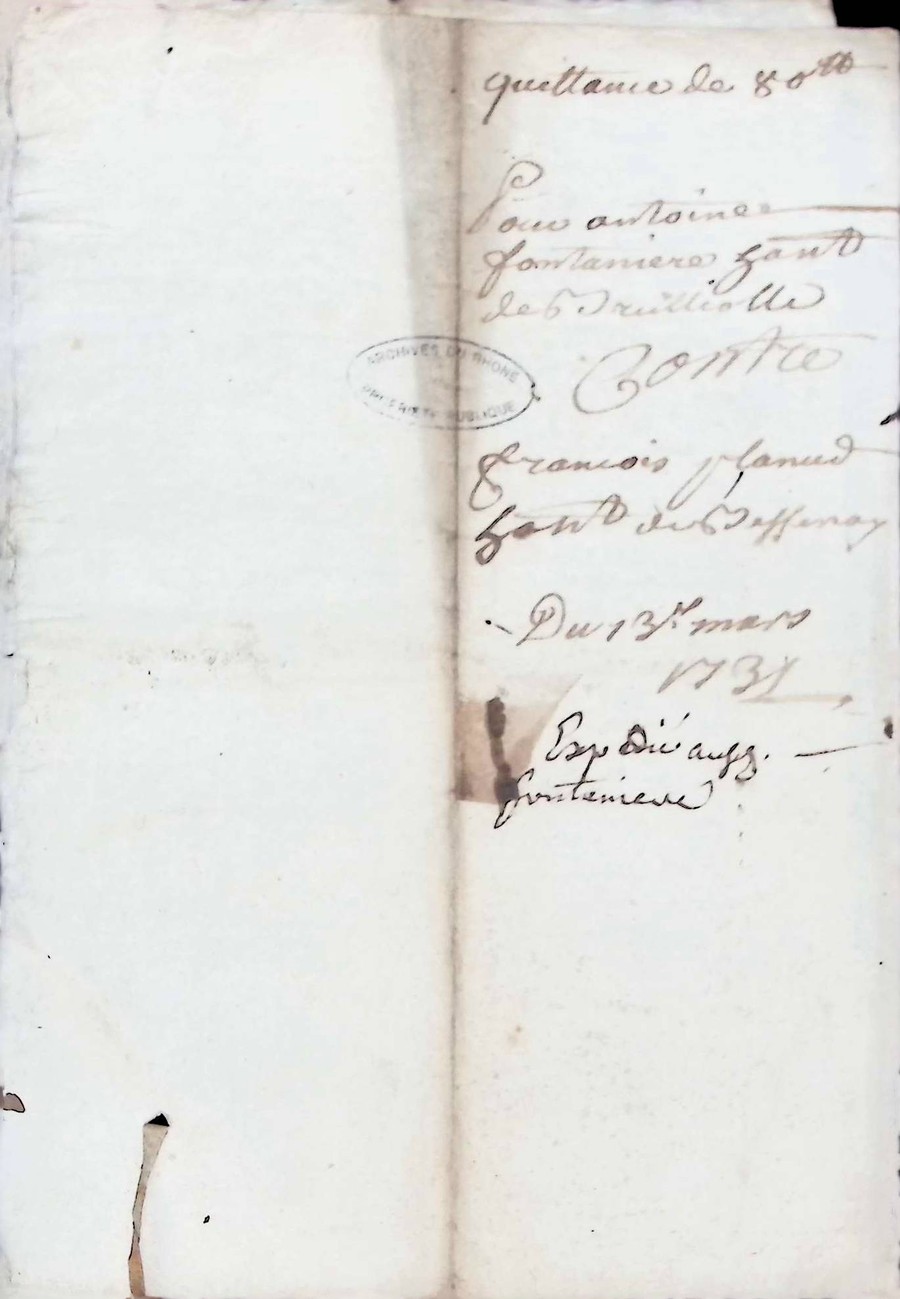 quittance de 80tt
Pour antoine
fontaniere hant
de Brulliolle
Contre
ARCHIVES DU RHONE
PROPRIETE PUBLIQUE
francois planud
hant de Bessenay
Du 13e mars
1731
Expedié
fonteniere